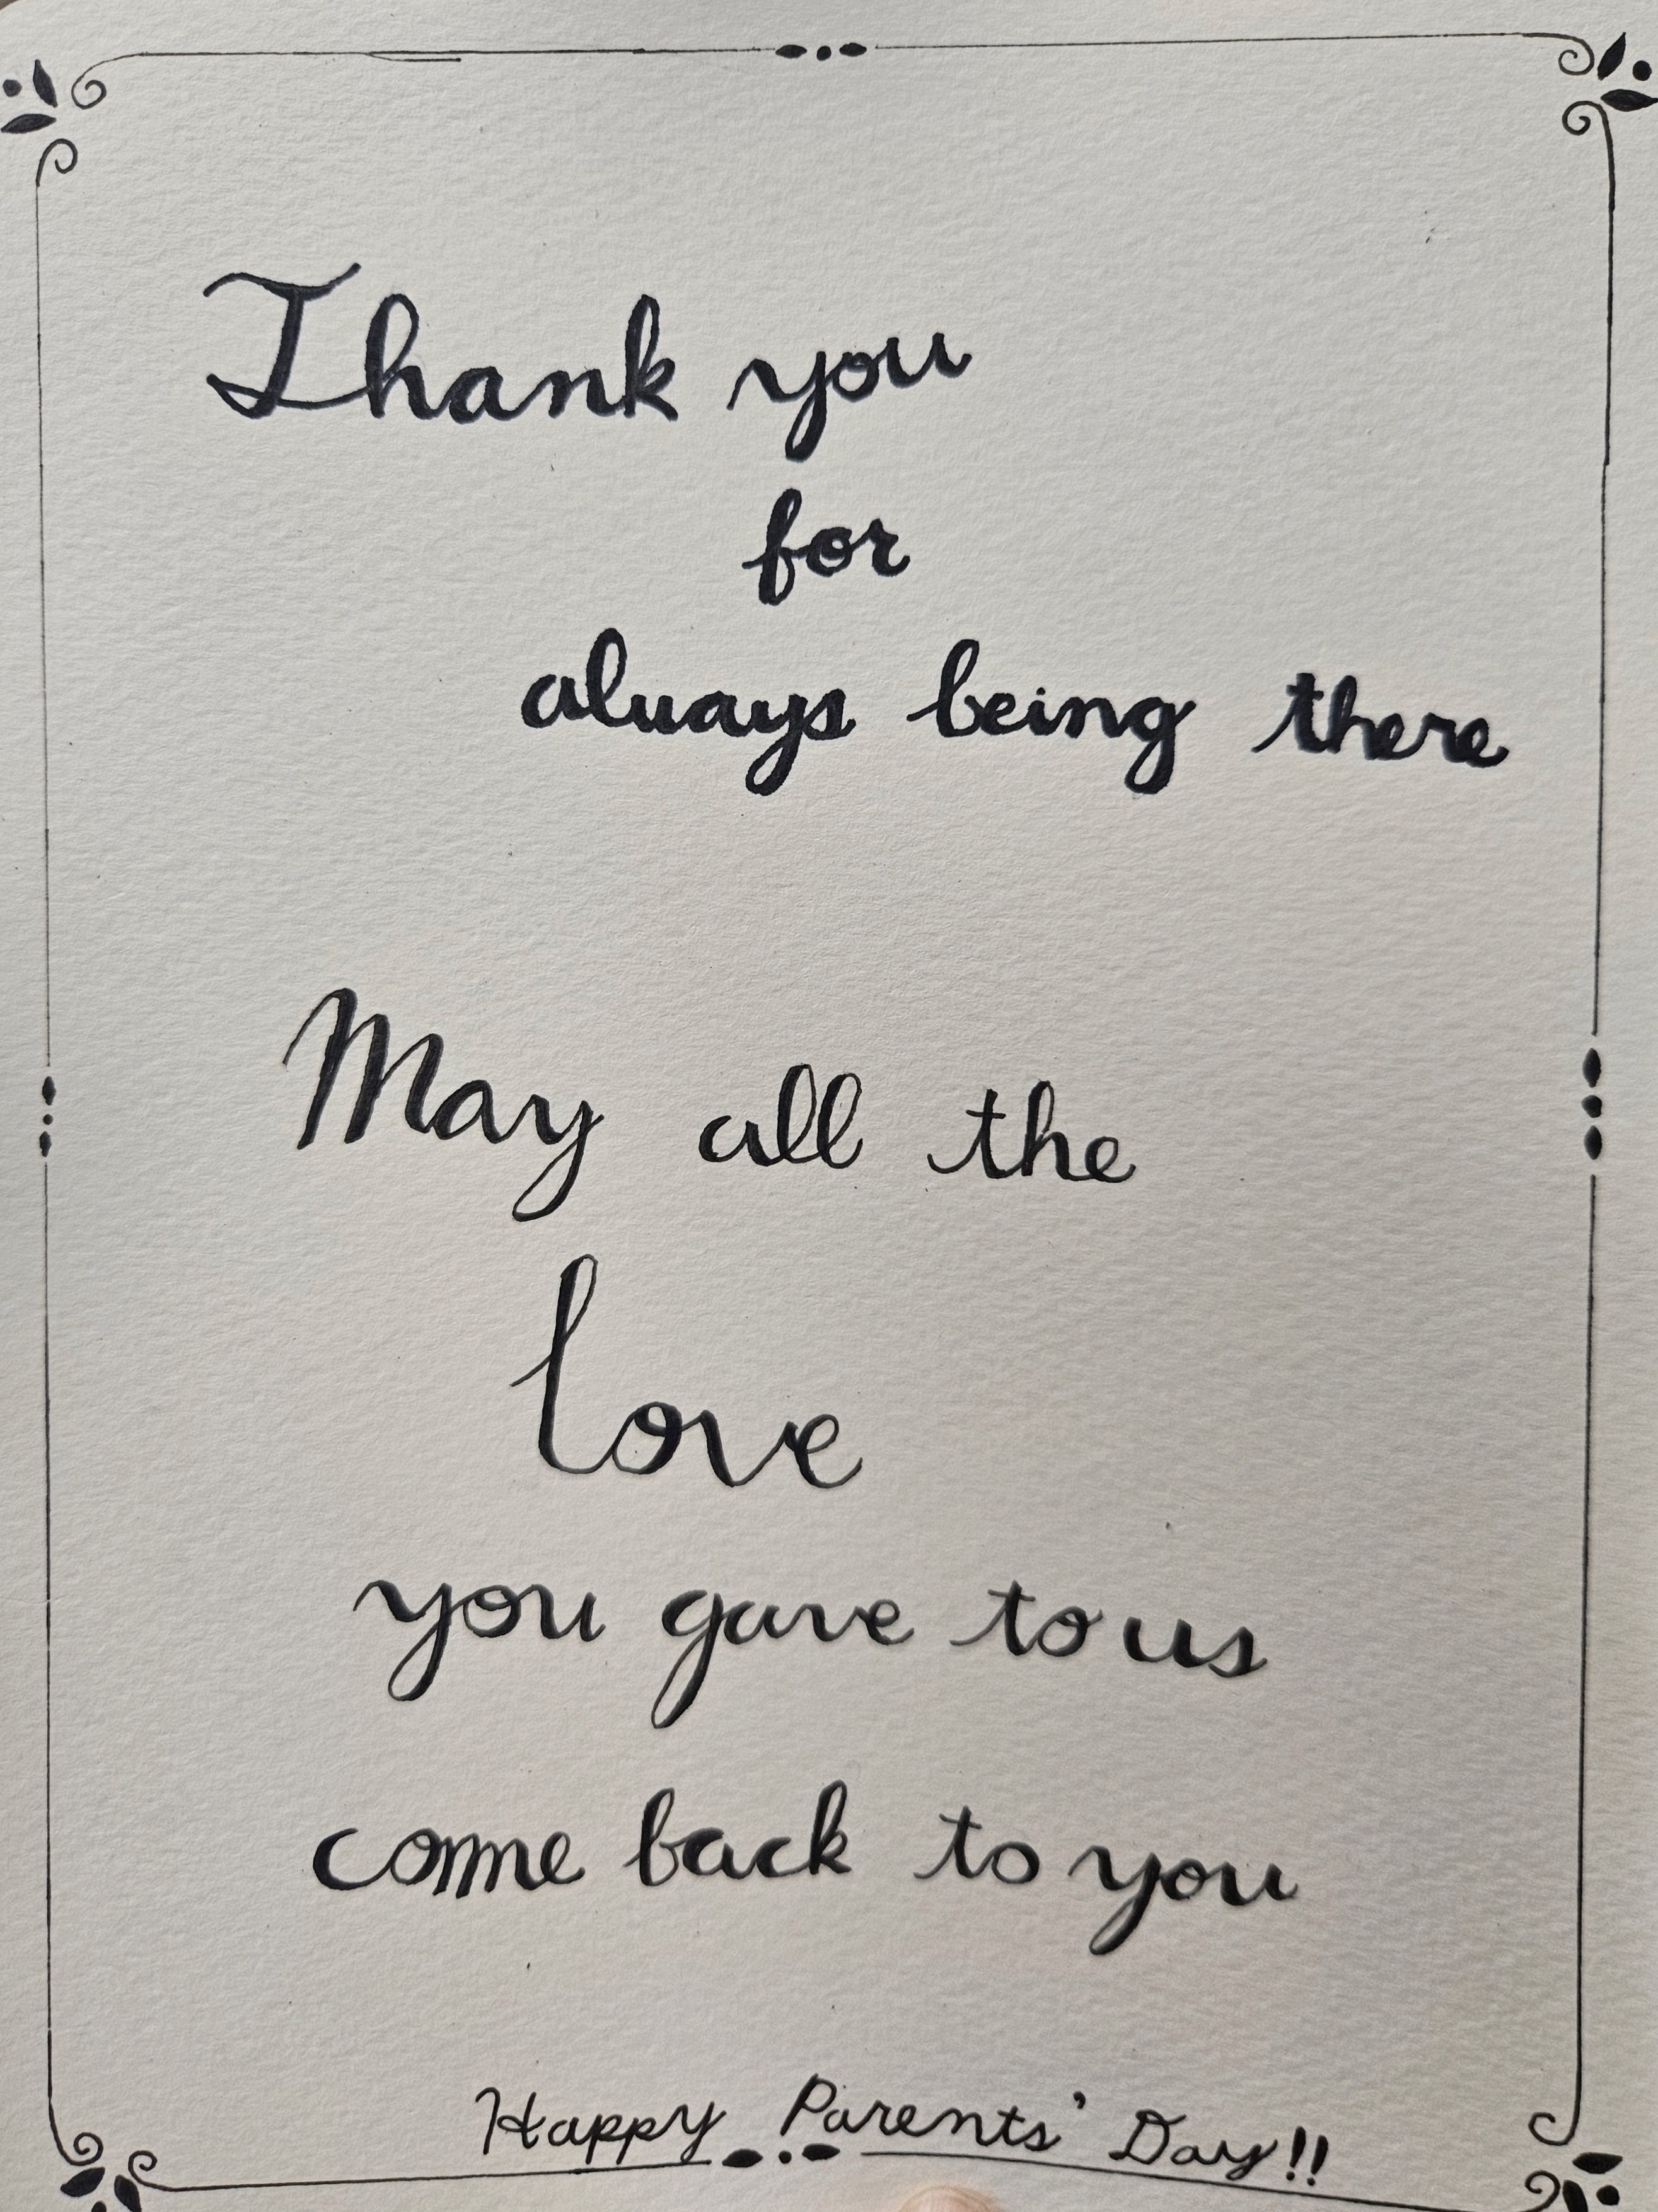 Thank you
for
always being there
May all the
love
you gave to us
come back to you
Happy Parents' Day!!